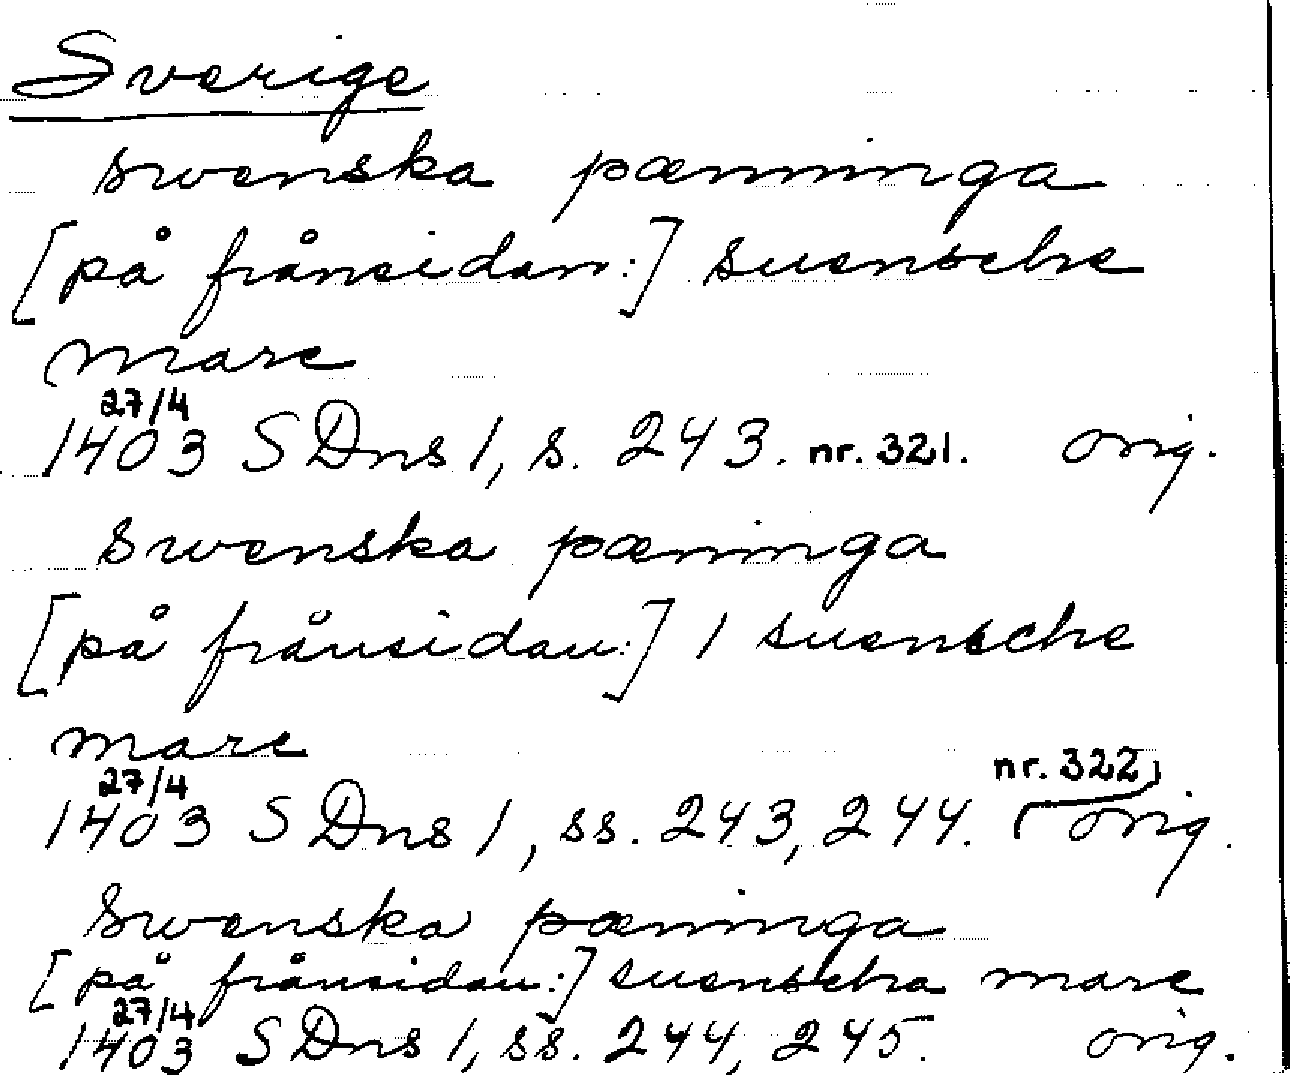 Sverige
swenska pænninga
[på frånsidan:] suensche
marc
27/4
1403 SDns 1, s. 243. nr. 321. orig.
swenska pæninga
[på frånsidan:] 1 suensche
marc
27/4 nr. 322
1403 SDns 1, ss. 243, 244. orig.
swenska pæninga
[på frånsidan:] suenscha marc
27/4
1403 SDns 1, ss. 244, 245. orig.